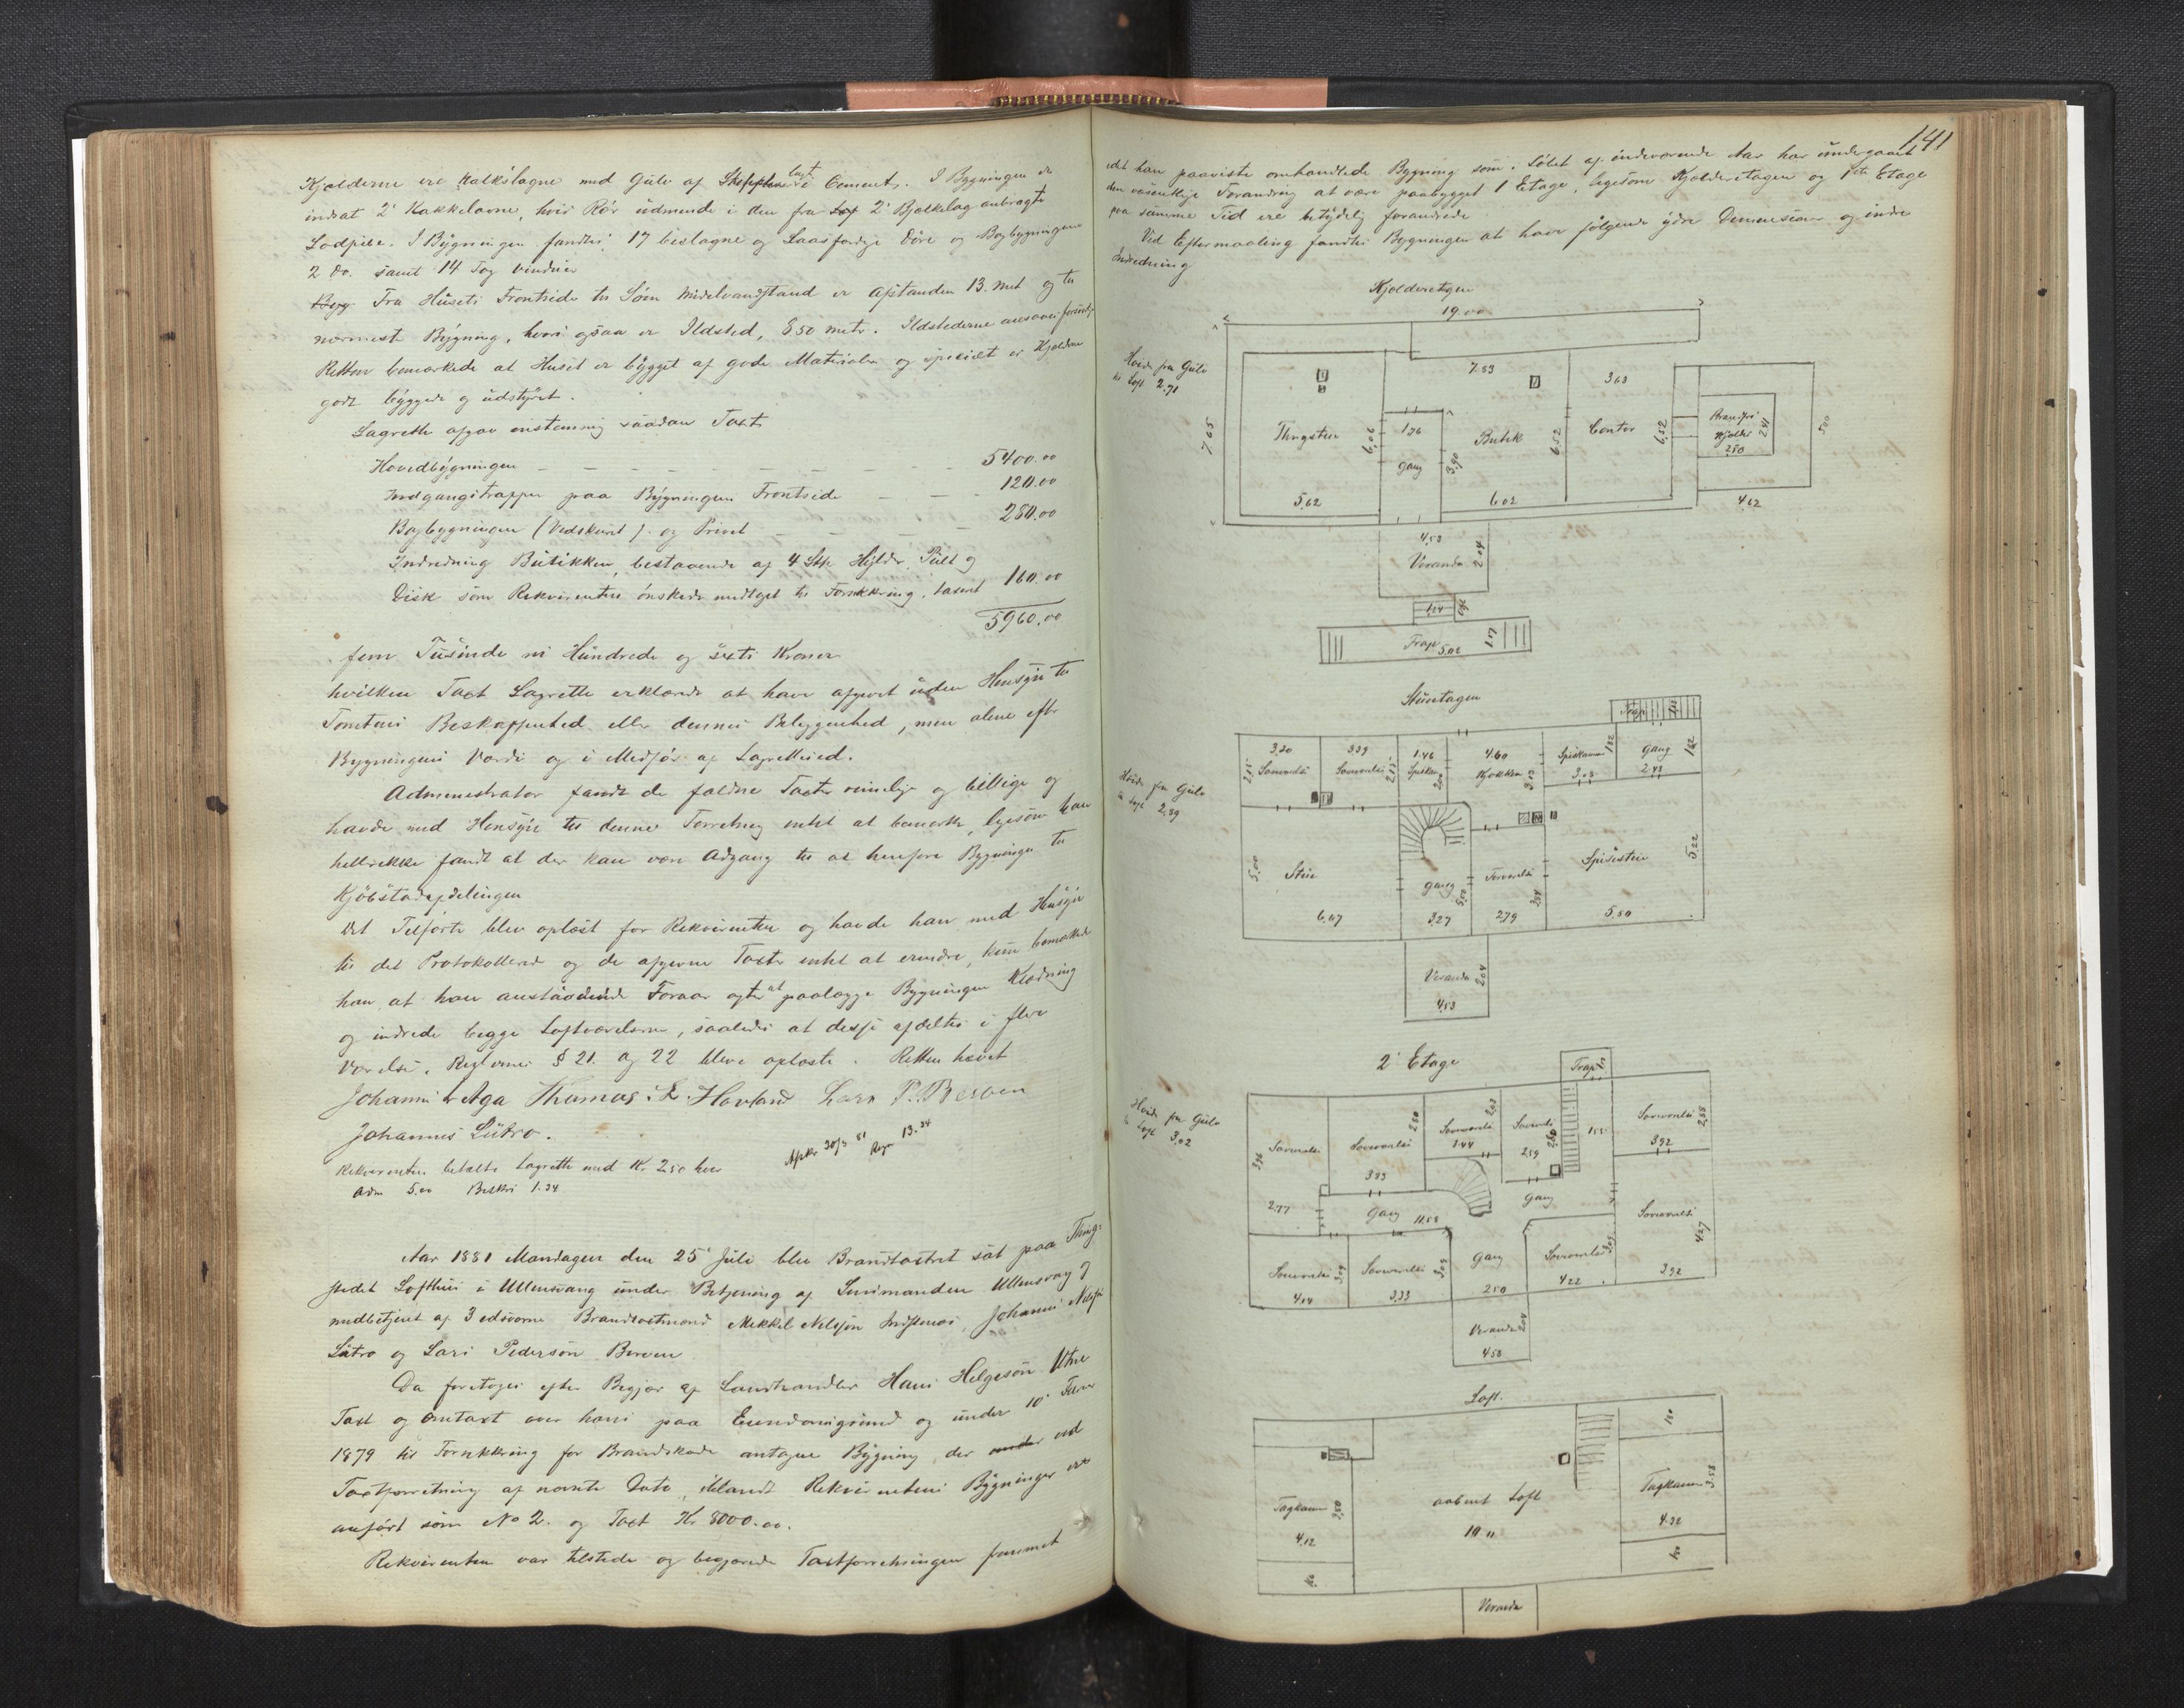 Kjælderne ere kalkslagne med Gulv af Skifer lagt i Cement. I Bygningen er
indsat 2 Kakkelovne, hvis Rør udmunde i den fra 2 Bjelkelag anbragte
Lodpibe. I Bygningen fandtes 17 beslagne og Laasfærdige Døre og Bagbygningen
2 do. samt 14 Fag Vinduer
Fra Husets Frontside til Søen Middelvandstand er Afstanden 13. met og til
nærmeste Bygning, hvori ogsaa er Ildsted, 8.50 metr. Ildstederne ansaaes forsvarlige
Retten bemærkede at Huset er bygget af gode Materialer og specielt er Kjælderne
godt byggede og udstyret.
Lagrette afgav enstemmig saadan Taxt
Hovedbygningen — — — — — 5400.00
Indgangstrappen paa Bygningens Frontside — — — 120.00
Bagbygningen (Vedskuret) og Privet — — — 280.00
Indredning Butikken, bestaaende af 4 Stk Hylder, Pult og
Disk som Rekvirenten ønskede medtaget til Forsikkring, taxeret 160.00
5960.00
fem Tusinde ni Hundrede og sexti Kroner
hvilken Taxt Lagrette erklærede at have afgivet uden Hensyn til
Tomtens Beskaffenhed eller dennes Beliggenhed, men alene efter
Bygningens Værdi og i Medfør af Lagrettesed.
Administrator fandt de faldne Taxter rimelige og billige og
havde med Hensyn til denne Forretning intet at bemærke, ligesom han
hellerikke fandt at der kan være Adgang til at henføre Bygningen til
Kjøbstadafdelingen
Det Tilførte blev oplæst for Rekvirenten og havde han med Hensyn
til det Protokollerede og de afgivne Taxter intet at erindre, kun bemærkede
han at han anstundende Foraar agter at paalægge Bygningen Klædning
og indrede begge Loftværelserne, saaledes at disse afdeltes i flere
Værelser. Reglernes § 21. og 22 bleve oplæste. Retten hævet
Johannes L Aga Thomas. L. Hovland Lars P. Berven
Johannes Lutro.
Rekvirenten betalte Lagrette med Kr 2.50 hver
Adm 5.00 Beskri 1.34
Afskr 30/3 81 13.34
Aar 1881 Mandagen den 25 Juli blev Brandtaxtret sat paa Thing-
stedet Lofthus i Ullensvang under Betjening af Lensmanden Ullensvang og
medbetjent af 3 edsvorne Brandtaxtmænd Mikkel Nelsen Johannes Nelsen
Lutro og Lars Pederson Berven
Da foretoges efter Begjær af Landhandler Hans Helgeson Utne
Taxt og Omtaxt over hans paa Eiendomsgrund og under 10
1879 til Forsikkring for Brandskade antagne Bygning, der under ved
Taxtforretning af nævnte Dato, iblandt Rekvirentens Bygninger er
anført som No 2. og Taxt Kr 8000.00.
Rekvirenten var tilstede og begjærede Taxtforretningen fremmet
141
idet han paaviste omhandlede Bygning som i Løbet af indeværende Aar har undergaaet
den væsentlige Forandring at være paabygget 1 Etage, ligesom Kjælderetagen og 1ste Etage
paa samme Tid ere betydelig forandrede
Ved Eftermaaling fandtes Bygningen at have følgende ydre Dimensioner og indre
Indredning
Kjælderetagen
19.00
Høide fra Gulv
til Loft 2.71
7.65
7.53
3.63
Thingstue
5.62
6.06
1.36
Gang
3.90
Butik
6.02
6.52
Contor
6.52
Brændfri
Kjælder
2.50
2.41
5.00
4.62
4.53
Veranda
2.04
1.24
Trap
5.02
1.17
Stueetagen
Trap
Høide fra Gulv
til Loft 2.89
3.20
Soveværelse
3.39
Soveværelse
1.46
Spiskam
4.60
Kjøkken
Spiskamer
3.08
1.82
Gang
2.48
1.62
5.00
Stue
6.47
Gang
3.27
5.50
Forværelse
2.79
Spisestue
5.50
5.22
Veranda
2.04
4.53
2 Etage
Trap
Høide fra Gulv
til Loft
3.02
Soveværelse
3.96
2.77
Soveværelse
3.83
2.80
Soveværelse
3.44
2.03
Soveværelse
2.59
2.80
1.55
Soveværelse
3.92
2.58
Gang
11.58
Gang
Soveværelse
4.27
3.92
Soveværelse
4.14
3.09
Soveværelse
3.33
3.09
Gang
2.50
Soveværelse
4.22
3.09
Veranda
2.04
4.58
Loft.
Tagkamer
4.12
3.50
aabent Loft
10.11
Tagkamer
4.32
3.58
1.80
Veranda